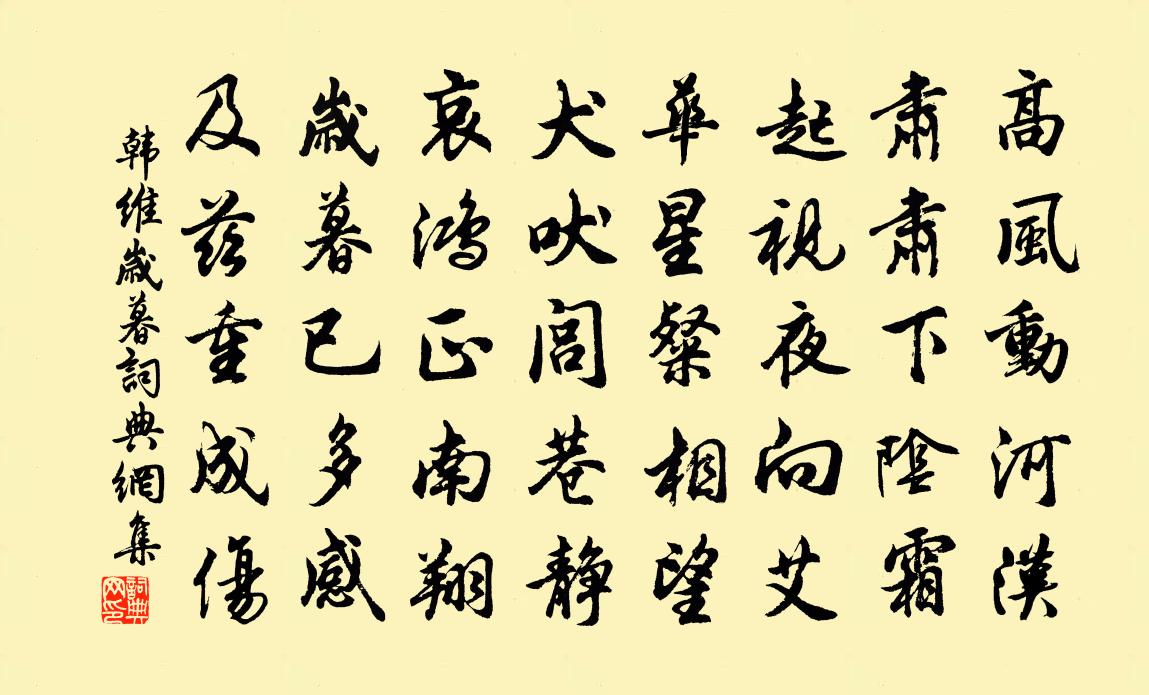 高風動河漢
肅肅下陰霜
起視夜向艾
華星粲相望
犬吠閭巷静
哀鴻正南翔
歲暮已多感
及茲重成傷
韩維歲暮詞典網集
詞典网印